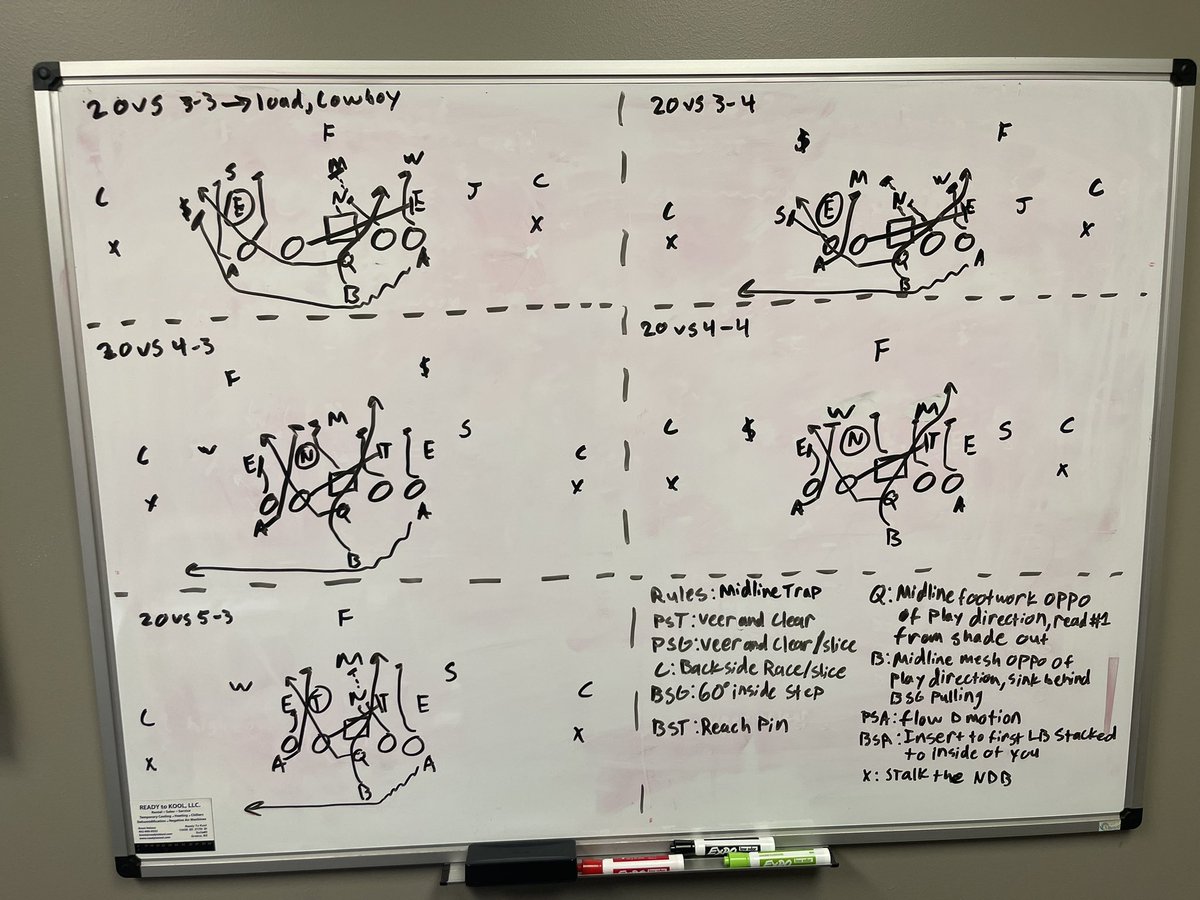 20 vs 3-3 → load, Cowboy
F
S
M
W
C
$
E
N
E
J
C
X
X
A
Q
A
B
20 vs 3-4
$
F
M
W
C
C
S
E
N
E
J
X
X
A
Q
A
B
20 vs 4-3
F
$
M
S
C
W
E
N
T
E
C
X
X
A
Q
A
B
20 vs 4-4
F
C
$
W
M
S
C
E
N
T
E
X
X
A
Q
A
B
20 vs 5-3
F
M
S
W
C
E
T
N
T
E
C
X
X
A
Q
A
B
Rules: Midline Trap
PST: veer and Clear
PSG: veer and Clear/slice
C: Backside Race/slice
BSG: 60° inside step
BST: Reach Pin
Q: Midline footwork oppo
of Play direction, read #1
from shade out
B: Midline mesh oppo of
play direction, sink behind
BSG Pulling
PSA: flow D motion
BSA: Insert to first LB stacked
to inside of you
X: Stalk the NDB
READY to KOOL, LLC.
Rental • Sales • Service
Temporary Cooling • Heating • Chillers
Dehumidification • Negative Air Machines
EXPO
EXPO
EXPO